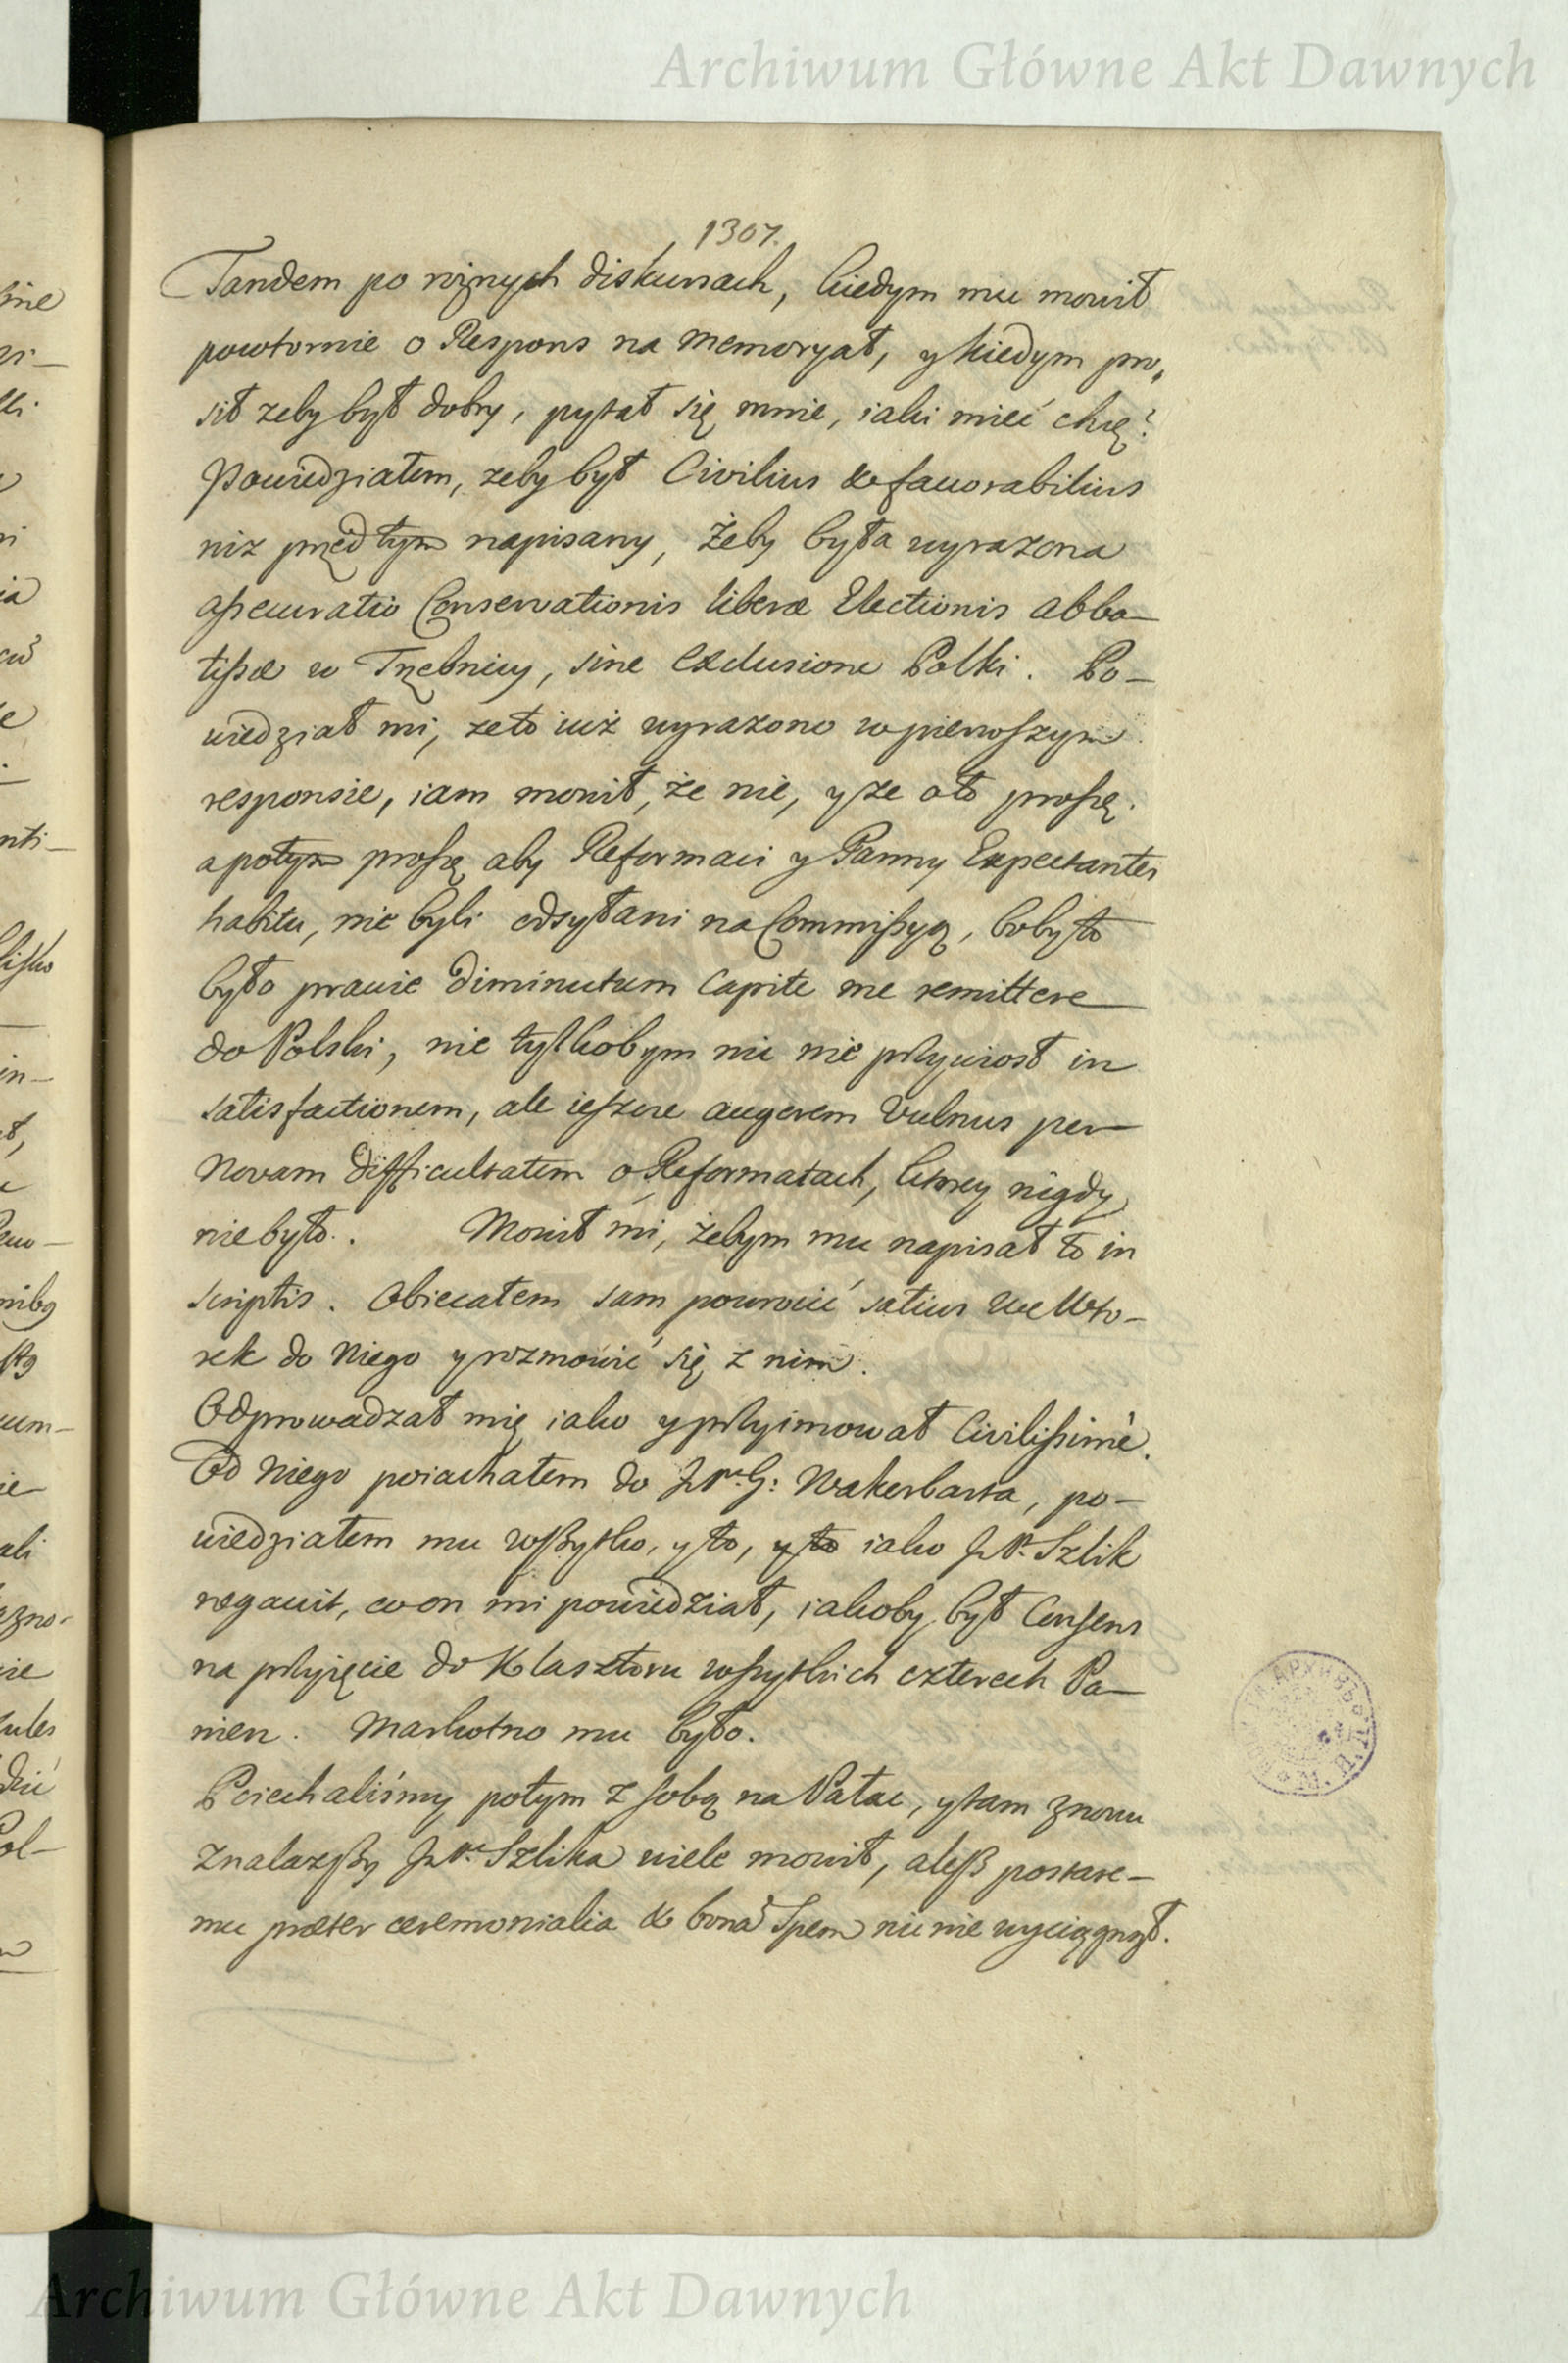 Archiwum Główne Akt Dawnych
1307.
Tandem po roznych diskursach, kiedym mu mowił
powtornie o Respons na memoryał, y kiedym pro,
sił zeby był dobry, pytał się mnie, iaki mieć chcę?
Powiedziałem, zeby był Civilius & favorabilius
niz przed tym napisany, żeby była wyrazona
assecuratio Conservationis liberæ Electionis Abba-
tissæ w Trzebnicy, sine exclusione Polki. Po-
wiedział mi, ze to iuż wyrazono w pierwszym
responsie, iam mowił, że nie, y że o to proszę.
a potym proszę aby Reformaci y Panny Expectantes
habitu, nie byli odsyłani na Commissyą, boby to
było prawie diminutum Capite me remittere
do Polski, nie tylkobym nic nie przyniosł in
satisfactionem, ale ieszcze augerem Vulnus per
Novam difficultatem o Reformatach, ktorey nigdy
nie było. Mowił mi, żebym mu napisał to in
scriptis. Obiecałem sam powrocić satius we Wto-
rek do Niego y rozmowić się z nim.
Odprowadzał mię iako y przyimował Civilissimè.
Od Niego poiachałem do JP. G: Wakerbarta, po-
wiedziałem mu wszytko, y to, y to iako JP. Szlik
negavit, co on mi powiedział, iakoby był Consens
na przyięcie do Klasztoru wszytkich czterech Pa-
nien. Markotno mu było.
Poiechaliśmy potym z sobą na Pałac, y tam znowu
znalazszy JP. Szlika wiele mowił, aless postare-
mu præter ceremonialia & bonã Spem nic nie wyciągnął.
Archiwum Główne Akt Dawnych